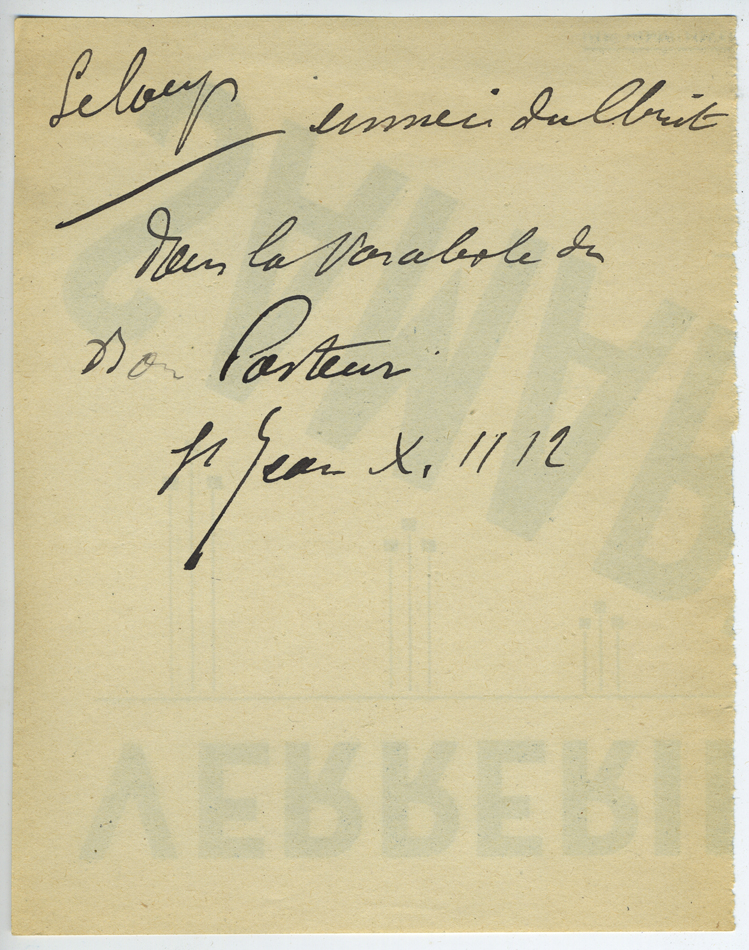 Le loup ennemi du Christ
Dans la Parabole du
Bon Pasteur
St Jean X. 11 12
VERRERI